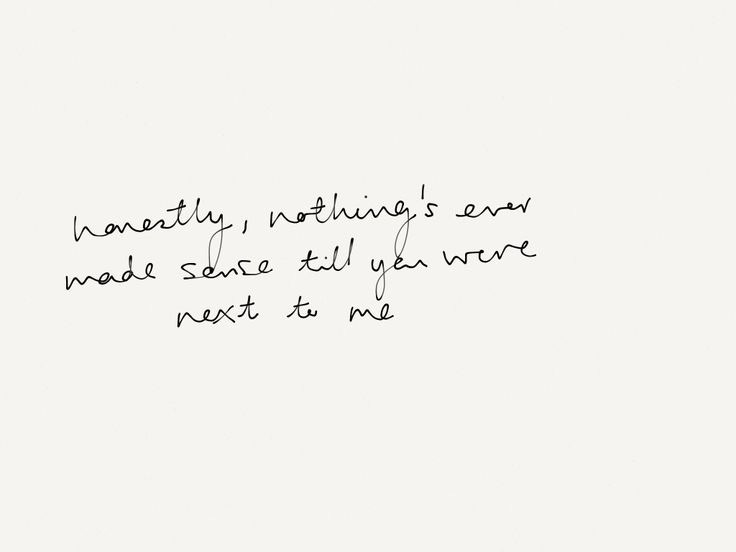 honestly, nothing's ever
made sense till you were
next to me